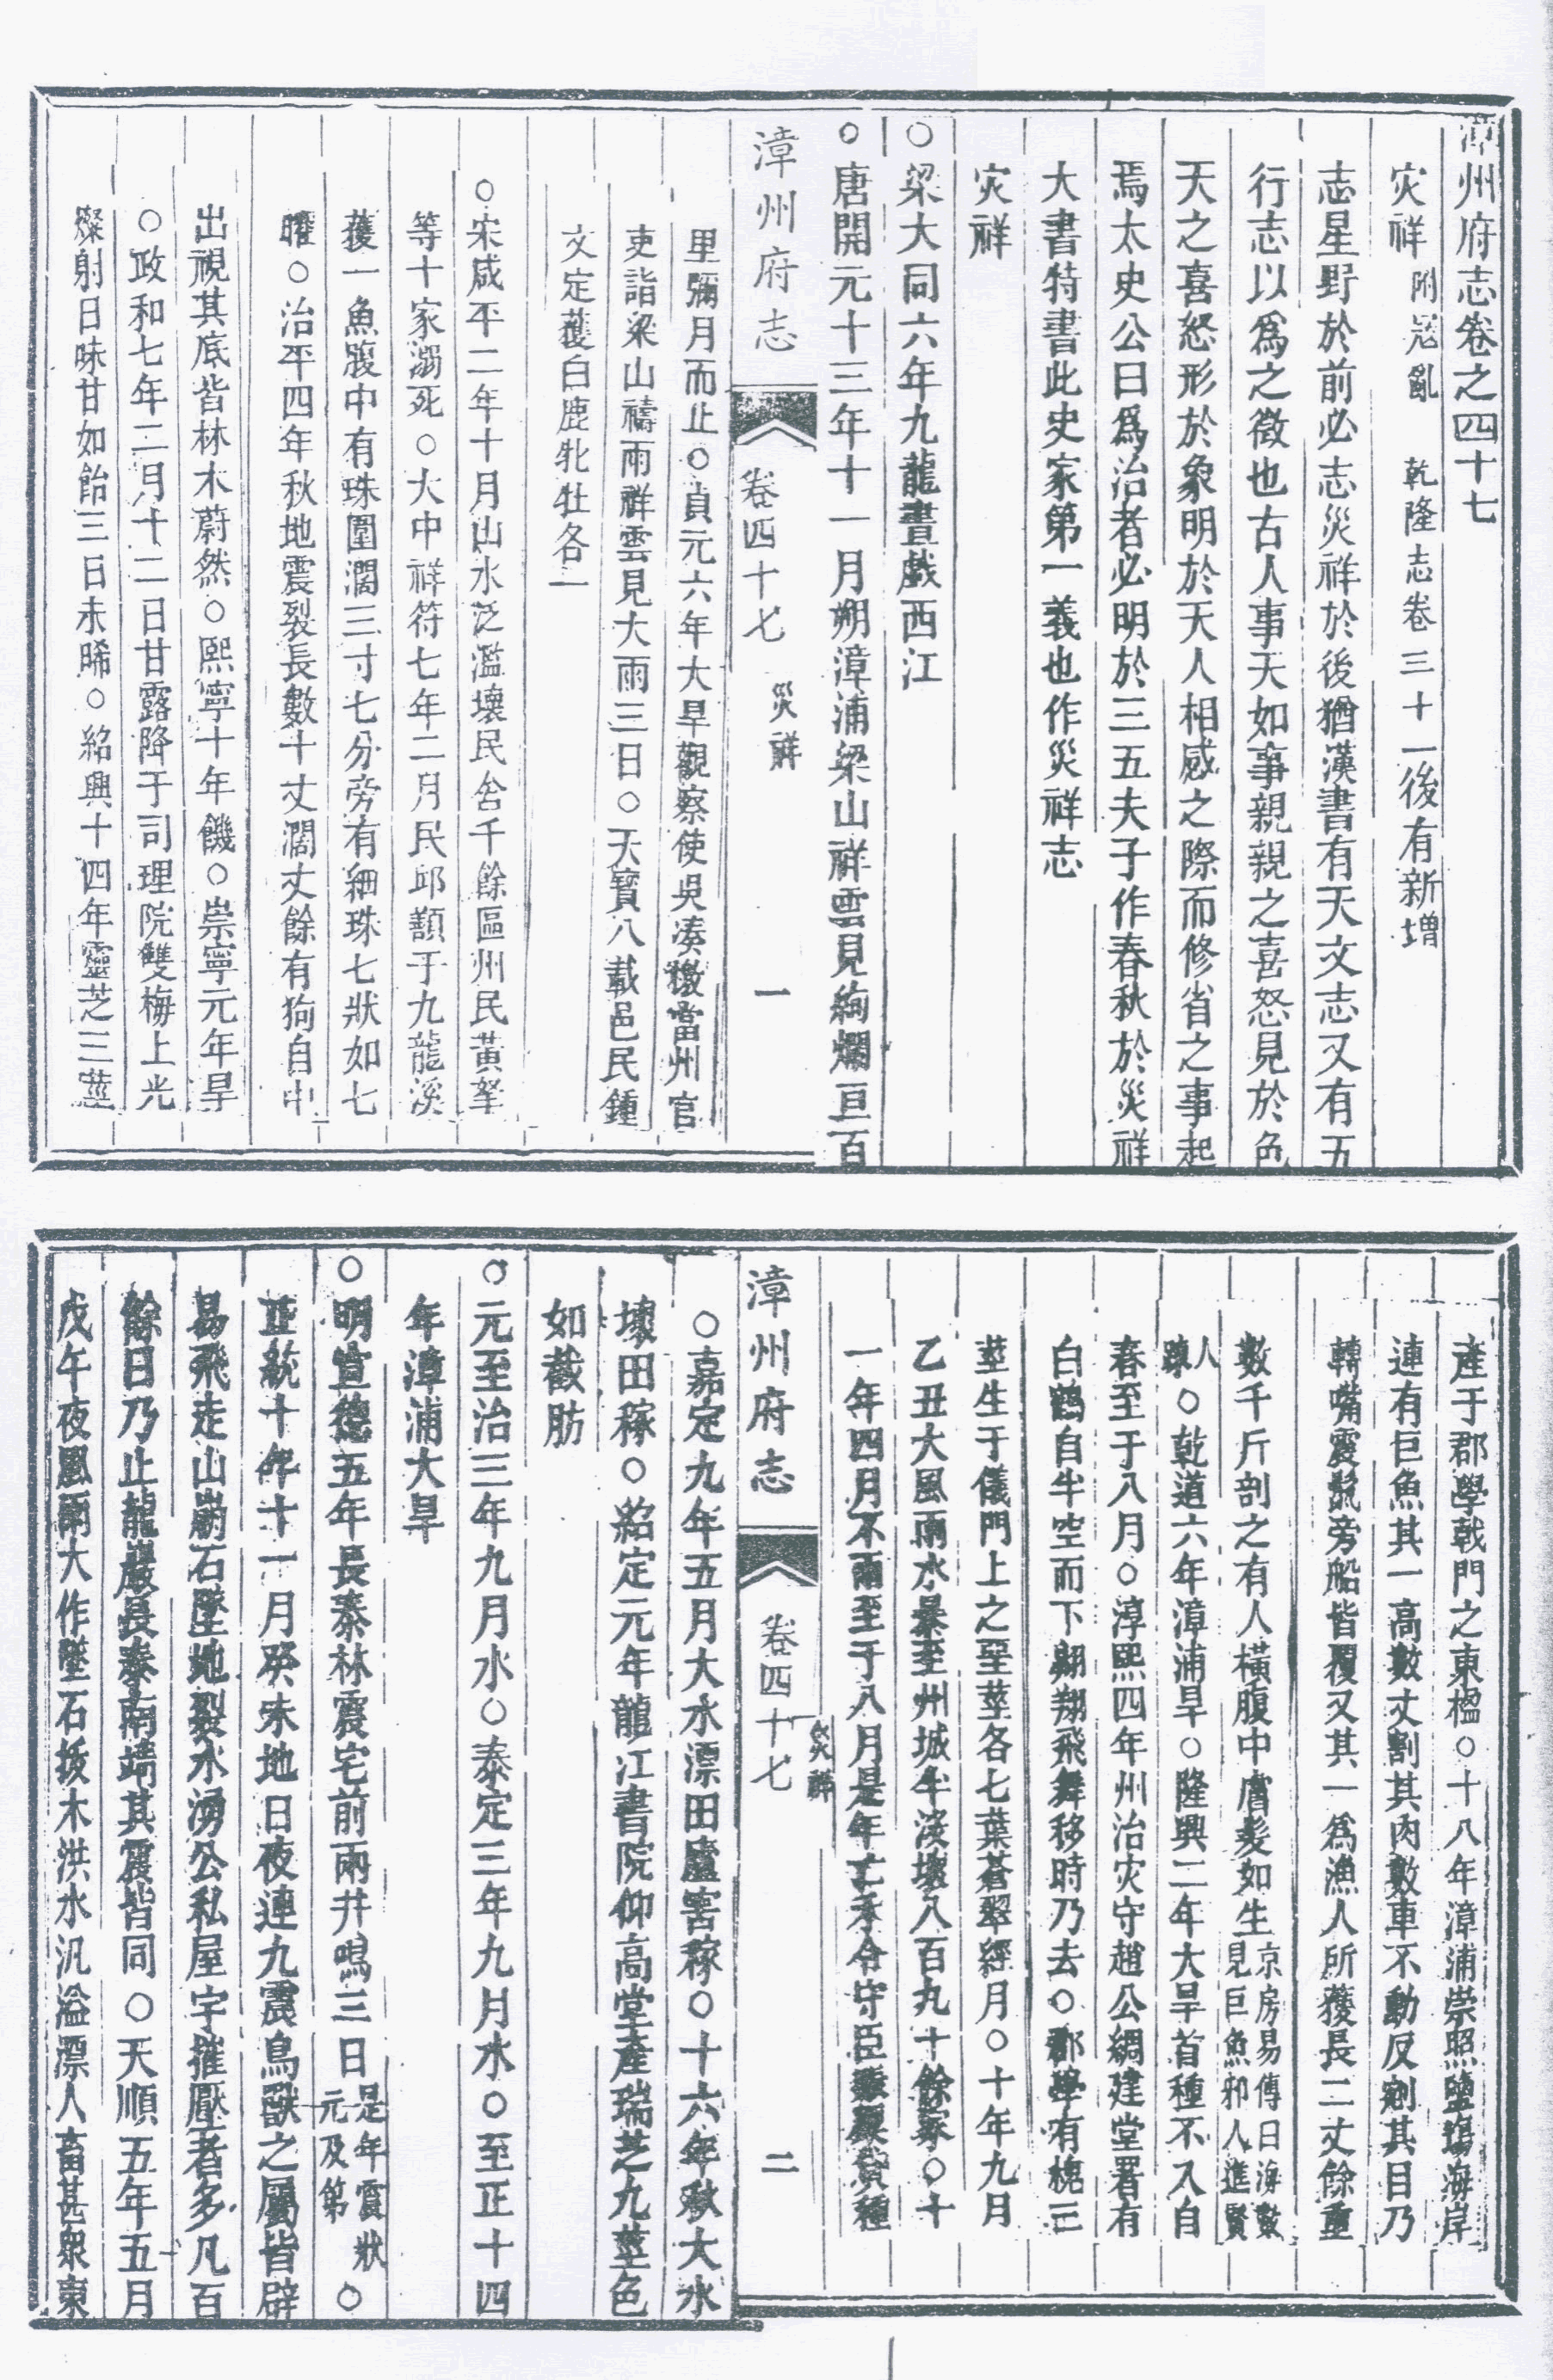 漳州府志卷之四十七
灾祥 附寇亂 乾隆志卷三十一後有新增
志星野於前必志災祥於後猶漢書有天文志又有五
行志以爲之徵也古人事天如事親親之喜怒見於色
天之喜怒形於象明於天人相感之際而修省之事起
焉太史公曰爲治者必明於三五夫子作春秋於災祥
大書特書此史家第一義也作災祥志
灾祥
○梁大同六年九龍晝戲西江
○唐開元十三年十一月朔漳浦梁山祥雲見絢爛亘百
漳州府志 卷四十七 災祥 一
里彌月而止○貞元六年大旱觀察使吳湊檄當州官
吏詣梁山禱雨祥雲見大雨三日○天寶八載邑民鍾
文定獲白鹿牝牡各一
○宋咸平二年十月山水泛濫壞民舍千餘區州民黃拏
等十家溺死○大中祥符七年二月民邱顗于九龍溪
獲一魚腹中有珠圍濶三寸七分旁有細珠七狀如七
曜○治平四年秋地震裂長數十丈濶丈餘有狗自中
出視其底皆林木蔚然○熙寧十年饑○崇寧元年旱
○政和七年二月十二日甘露降于司理院雙梅上光
燦射日味甘如飴三日未晞○紹興十四年靈芝三莖
產于郡學戟門之東楹○十八年漳浦崇照鹽塲海岸
連有巨魚其一高數丈割其肉數車不動反剜其目乃
轉嘴震鬣旁船皆覆又其一爲漁人所獲長二丈餘重
數千斤剖之有人橫腹中膚髮如生 京房易傳曰海數見巨魚邪人進賢
人踈○乾道六年漳浦旱○隆興二年大旱首種不入自
春至于八月○淳熙四年州治灾守趙公綢建堂署有
白鶴自半空而下翱翔飛舞移時乃去○郡學有槐三
莖生于儀門上之堊莖各七葉蒼翠經月○十年九月
乙丑大風雨水暴至州城半沒壞八百九十餘家○十
一年四月不雨至于八月是年亡禾令守臣賑貸種
漳州府志 卷四十七 災祥 二
○嘉定九年五月大水漂田廬害稼○十六年秋大水
壞田稼○紹定元年龍江書院仰高堂產瑞芝九莖色
如截肪
○元至治三年九月水○泰定三年九月水○至正十四
年漳浦大旱
○明宣德五年長泰林震宅前兩井鳴三日 是年震狀元及第 ○
正統十年十一月癸未地日夜連九震鳥獸之屬皆辟
易飛走山崩石墜地裂水湧公私屋宇摧壓者多凡百
餘日乃止龍巖長泰南靖其震皆同○天順五年五月
戊午夜風雨大作墜石拔木洪水汎溢漂人畜甚衆東